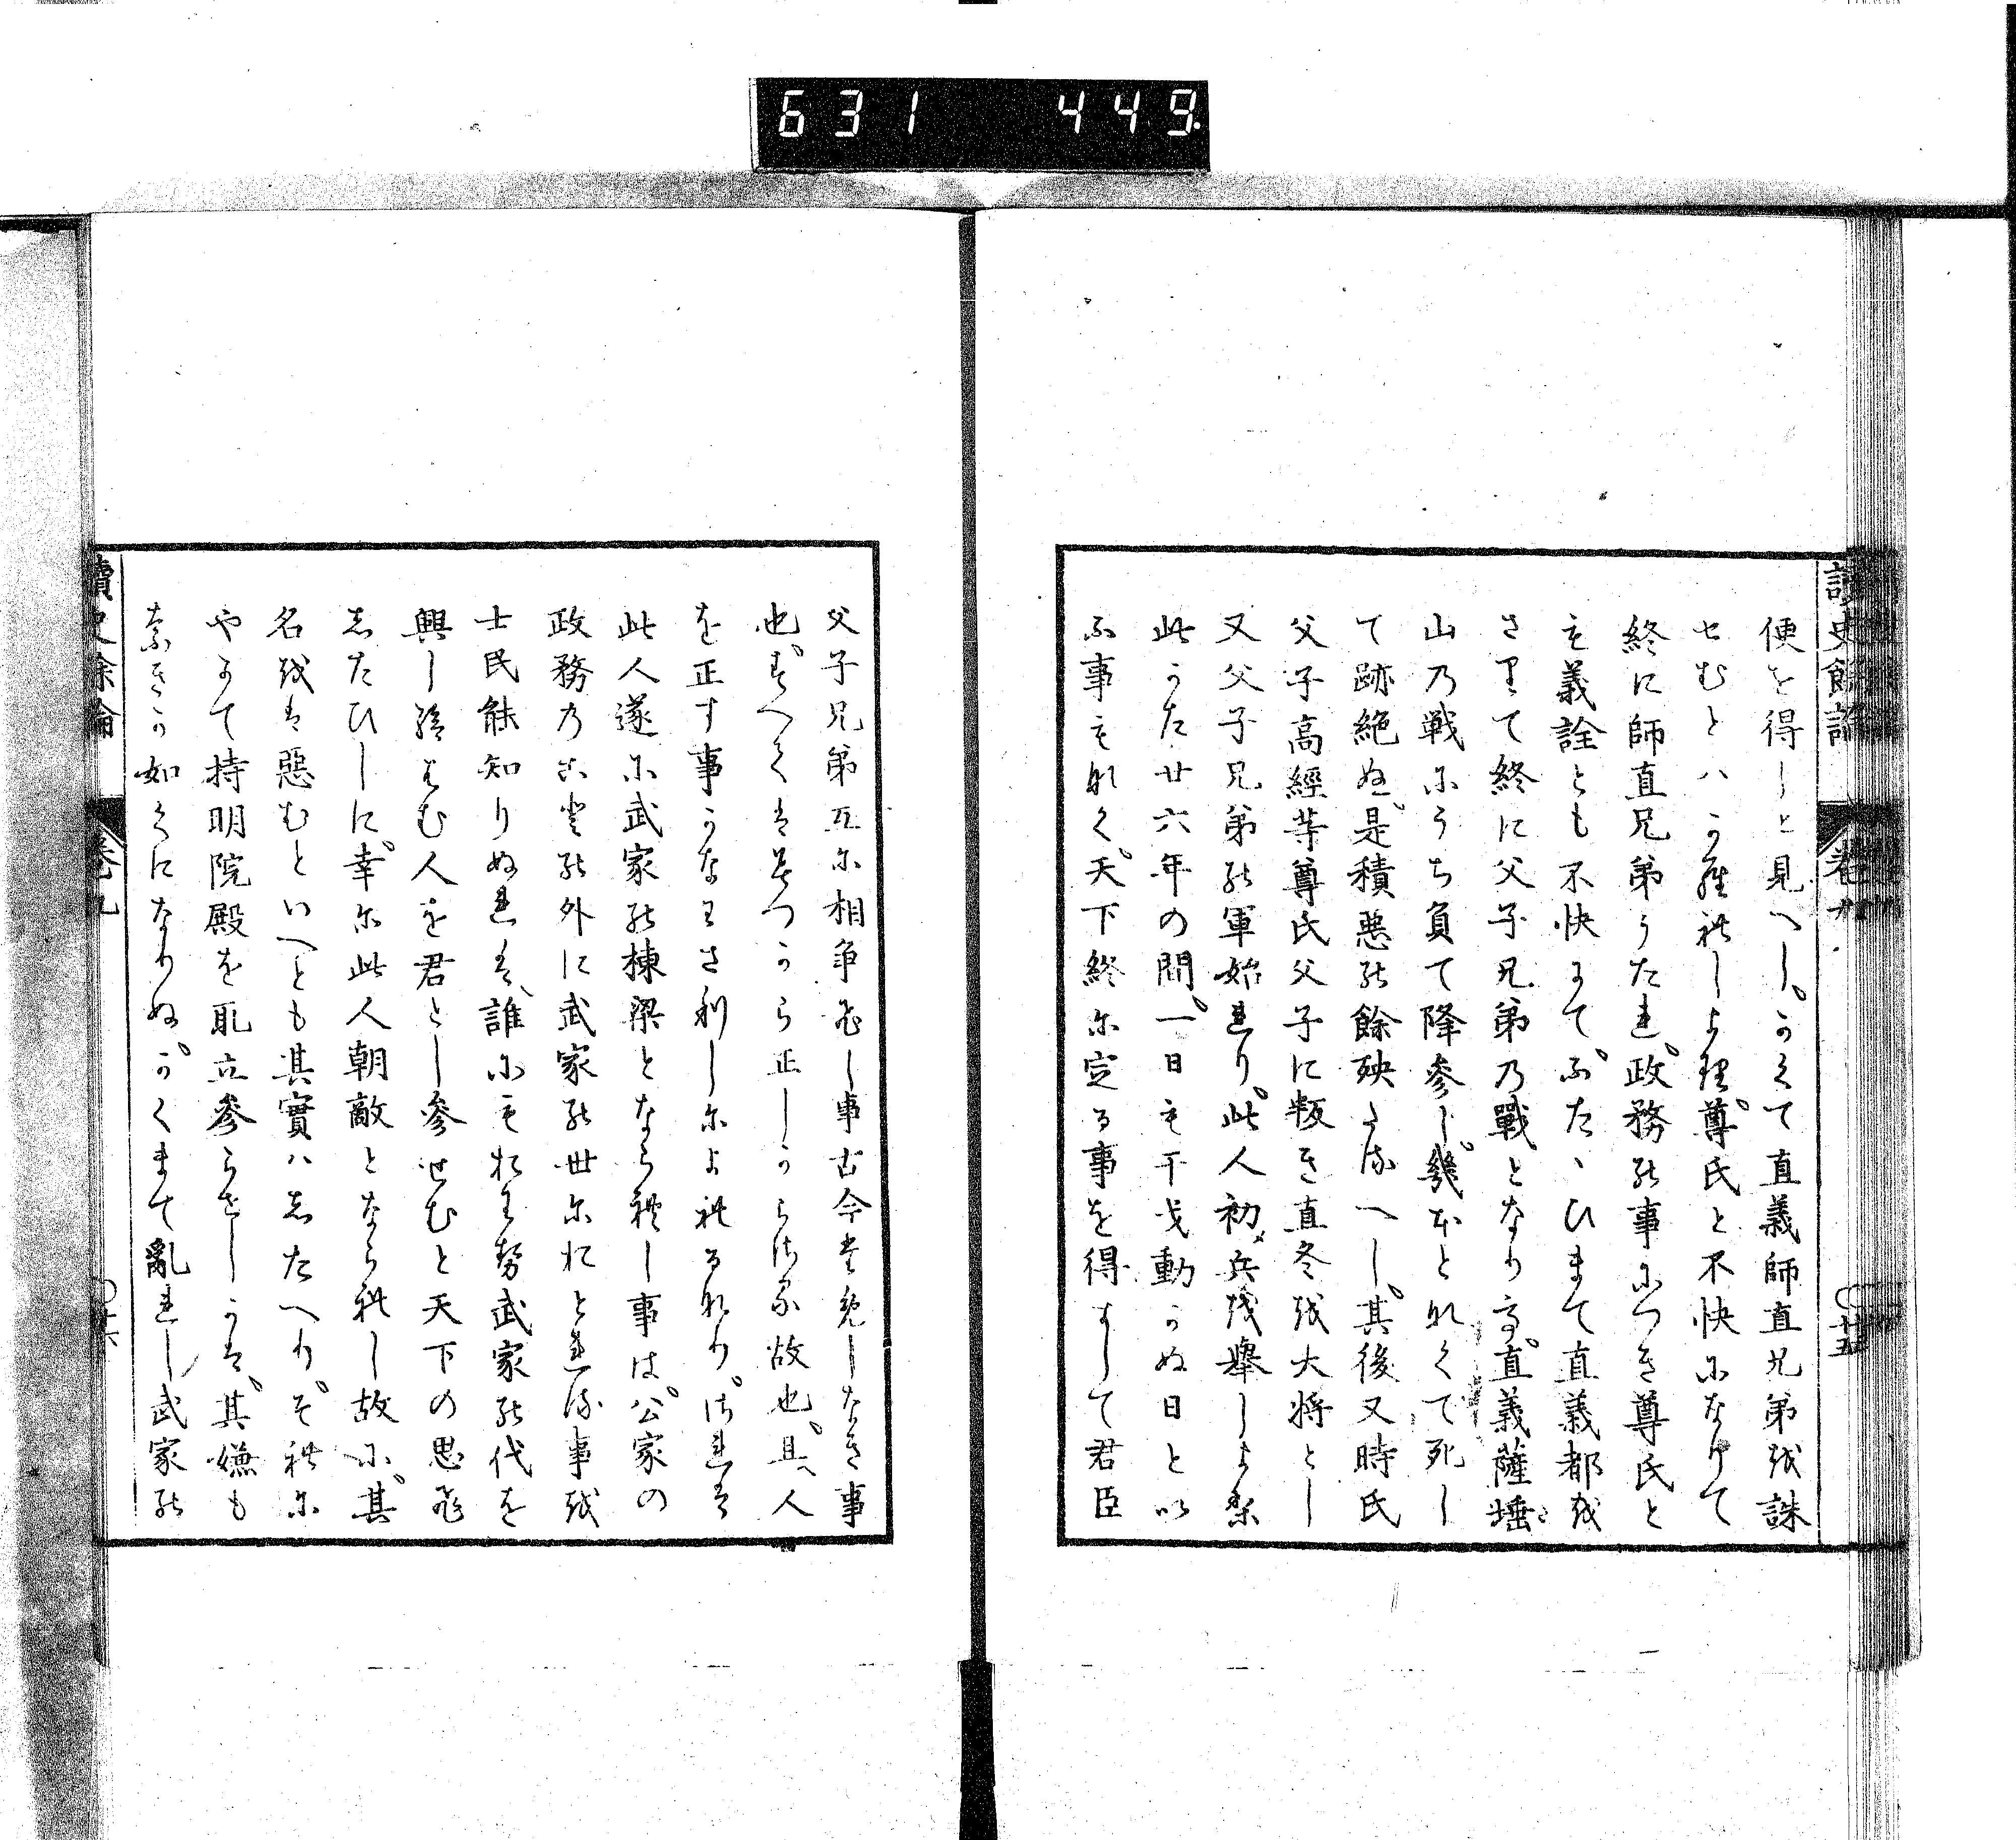 631 449.
讀史餘論 卷九 〇廿五
便を得しと見へし。かくて直義師直兄弟を誅
せむとはかられしより。尊氏と不快になりて
終に師直兄弟うたれ。政務の事につき尊氏と
も義詮とも不快にて。ふたゝひまて直義都を
さりて終に父子兄弟乃戰となり畢。直義薩埵
山乃戦にうち負て降参し。幾ほとなくて死し
て跡絶ぬ。是積悪の餘殃たるへし。其後又時氏
父子高經等尊氏父子に叛き直冬を大将とし
又父子兄弟の軍始れり。此人初メ兵を舉しより
此かた廿六年の間。一日も干戈動かぬ日とい
ふ事もなく。天下終に定る事を得すして君臣
父子兄弟互に相争ひし事古今ためしなき事
也。すへてはみつから正しからさる故也。且、人
を正す事かなはさりしによれるなり。されは
此人遂に武家の棟梁となられし事は。公家の
政務乃古に豈の外に武家の世におとれる事を
士民能知りぬれは、誰にもおはせ武家の代を
興し給はむ人を君とし参せむと天下の思ひ
したひしに。幸に此人朝敵となられし故に。其
名をは惡むといへとも其實はしたへり。それに
やかて持明院殿を取立参らせしかは。其嫌も
なきか如くになりぬ。かくまて亂れし武家の
讀史餘論 卷九 〇廿六